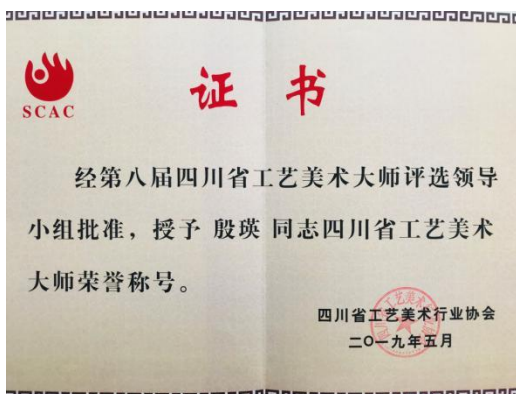 SCAC
证书
经第八届四川省工艺美术大师评选领导
小组批准，授予 殷瑛 同志四川省工艺美术
大师荣誉称号。
四川省工艺美术行业协会
二〇一九年五月